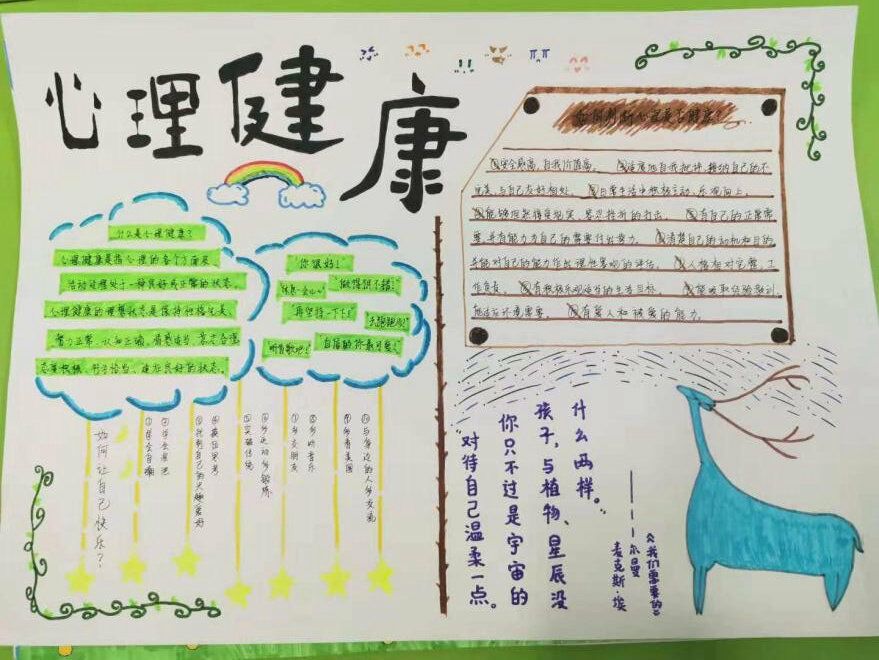 心理健康
什么是心理健康？
心理健康是指心理的各个方面及
活动过程处于一种良好或正常的状态。
心理健康的理想状态是保持性格完美、
智力正常、认知正确、情感适当、意志合理、
态度积极、行为恰当、适应良好的状态。
"你很好！"
"休息一会儿～"
"做得很不错！"
"再坚持一下下！"
"去跑跑吧"
"听首歌吧！"
"自信的你最可爱！"
如何让自己快乐？
①学会自嘲
②学会
③找到自己的兴趣爱好
④换位思考
⑤
⑥多运动多锻炼
⑦多交朋友
⑧多听音乐
⑨多看美图
⑩与身边的人多交流
如何判断心理是否健康？
安全感高，自我价值高。
自己的不
完美，与自己友好相处。日常生活中积极主动，乐观向上。
能够坦然接受现实
有自己的正常需
要，并有能力为自己的需要付出努力。有清楚自己的动机和目的，
并能对自己的能力作出理性客观的评估。人格相对完整，
有积极乐观适当的生活目标。能吸取经验教训，
能适应环境需要。有爱人和被爱的能力。
"对待自己温柔一点。
你只不过是宇宙的
孩子，与植物、星辰没
什么两样。"
———麦克斯·埃
尔曼
《我们需要的》